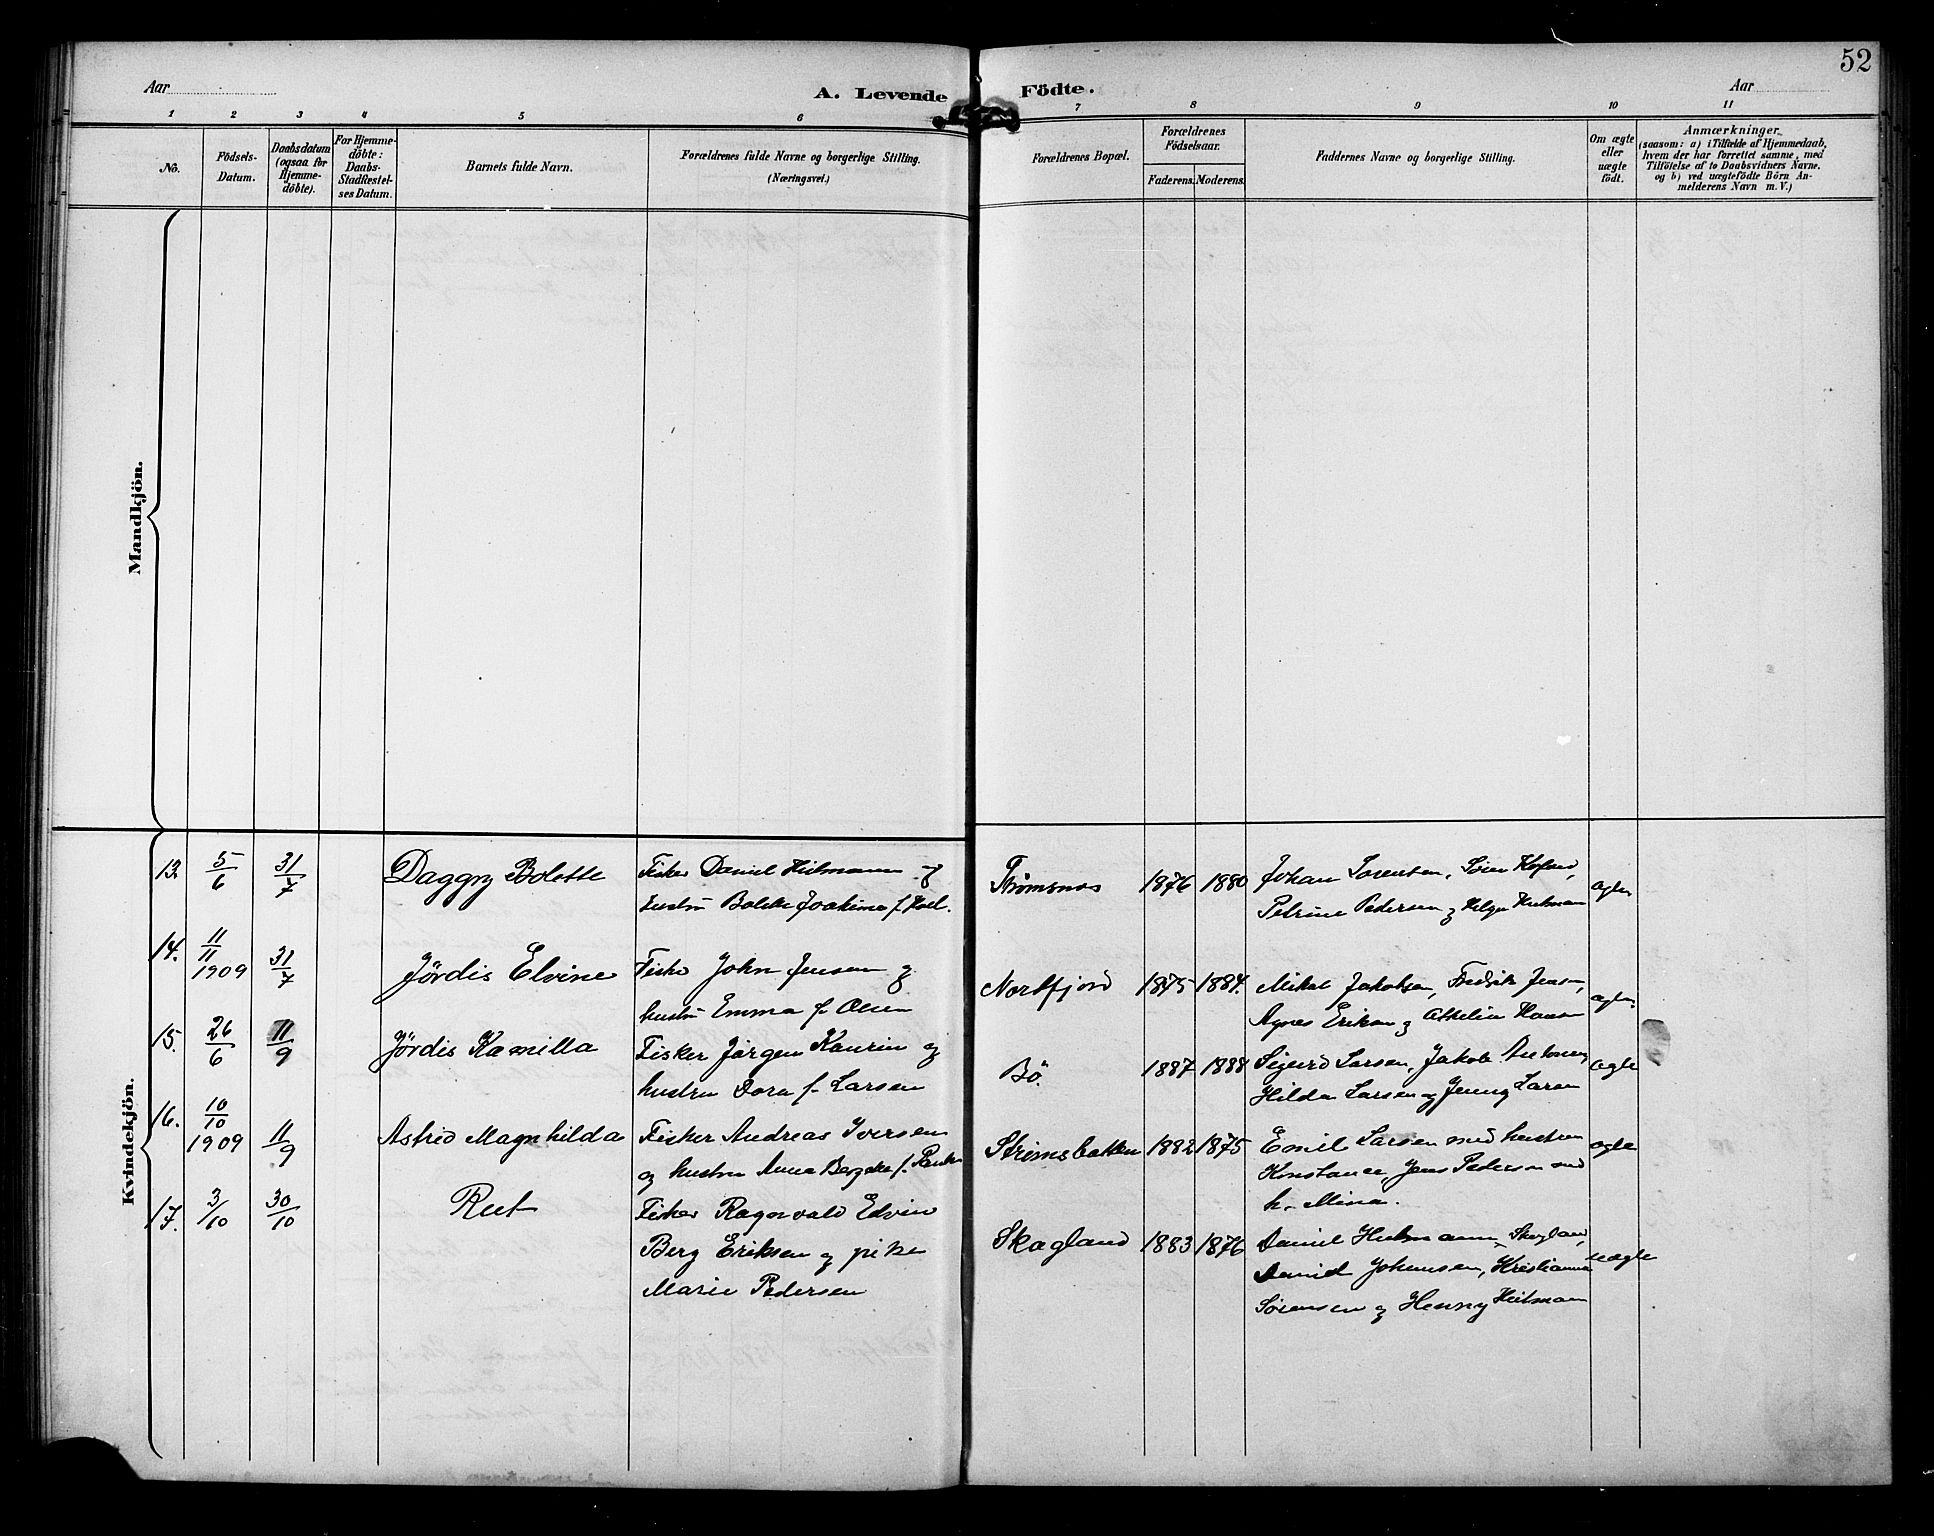 52
Aar
A. Levende Födte.
Aar
1 2 3 4 5 6 7 8 9 10 11
No.
Födsels-
Datum.
Daabsdatum
(ogsaa for
Hjemme-
döbte).
For Hjemme-
döbte:
Daabs-
Stadfæstel-
ses Datum.
Barnets fulde Navn.
Forældrenes fulde Navne og borgerlige Stilling.
(Næringsvei.)
Forældrenes Bopæl.
Forældrenes
Födselsaar.
Faderens. Moderens.
Faddernes Navne og borgerlige Stilling.
Om ægte
eller
uægte
födt.
Anmærkninger
(saasom: a) i Tilfælde af Hjemmedaab,
hvem der har forrettet samme, med
Tilföielse af to Daabsvidners Navne.
og b) ved uægtefödte Börn An-
melderens Navn m. V.)
Mandkjön.
Kvindekjön.
13. 5/6 31/7 Daggry Bolette Fisker Daniel Heitmann og Strømsnes 1876 1880 Johan Sorensen,
hustru Joakime f. Petrine Pedersen og Helga Heitmann
14. 11/11 1909 31/7 Jördis Elvine Fisker John Jensen og Nordfjord 1875 1884. Mikal Jakobsen, Fredrik Jensen,
hustru Emma f. Olsen Agnes Eriksen og Othelia Hansen
15. 26/6 11/9 Jördis Kamilla Fisker Jørgen Kaurin og Bö. 1887 1888 Sigurd Larsen, Jakob ægte
hustru Dora f. Larsen Hilda Larsen og Jenny Larsen
16. 10/10 1909 11/9 Astrid Magnhilda Fisker Andreas Iversen Strömsbakken 1882 1875 Emil Larsen med hustru ægte
og hustru Anna f. Konstance, Jens Pedersen med
h. Mina.
17. 3/10 30/10 Rut Fisker Ragnvald Edvin Skogland 1883 1876 Daniel Heitmann, Skogland, uægte
Berg Eriksen og pike Daniel Johansen, Kristianna
Marie Pedersen Sörensen og Henny Heitmann